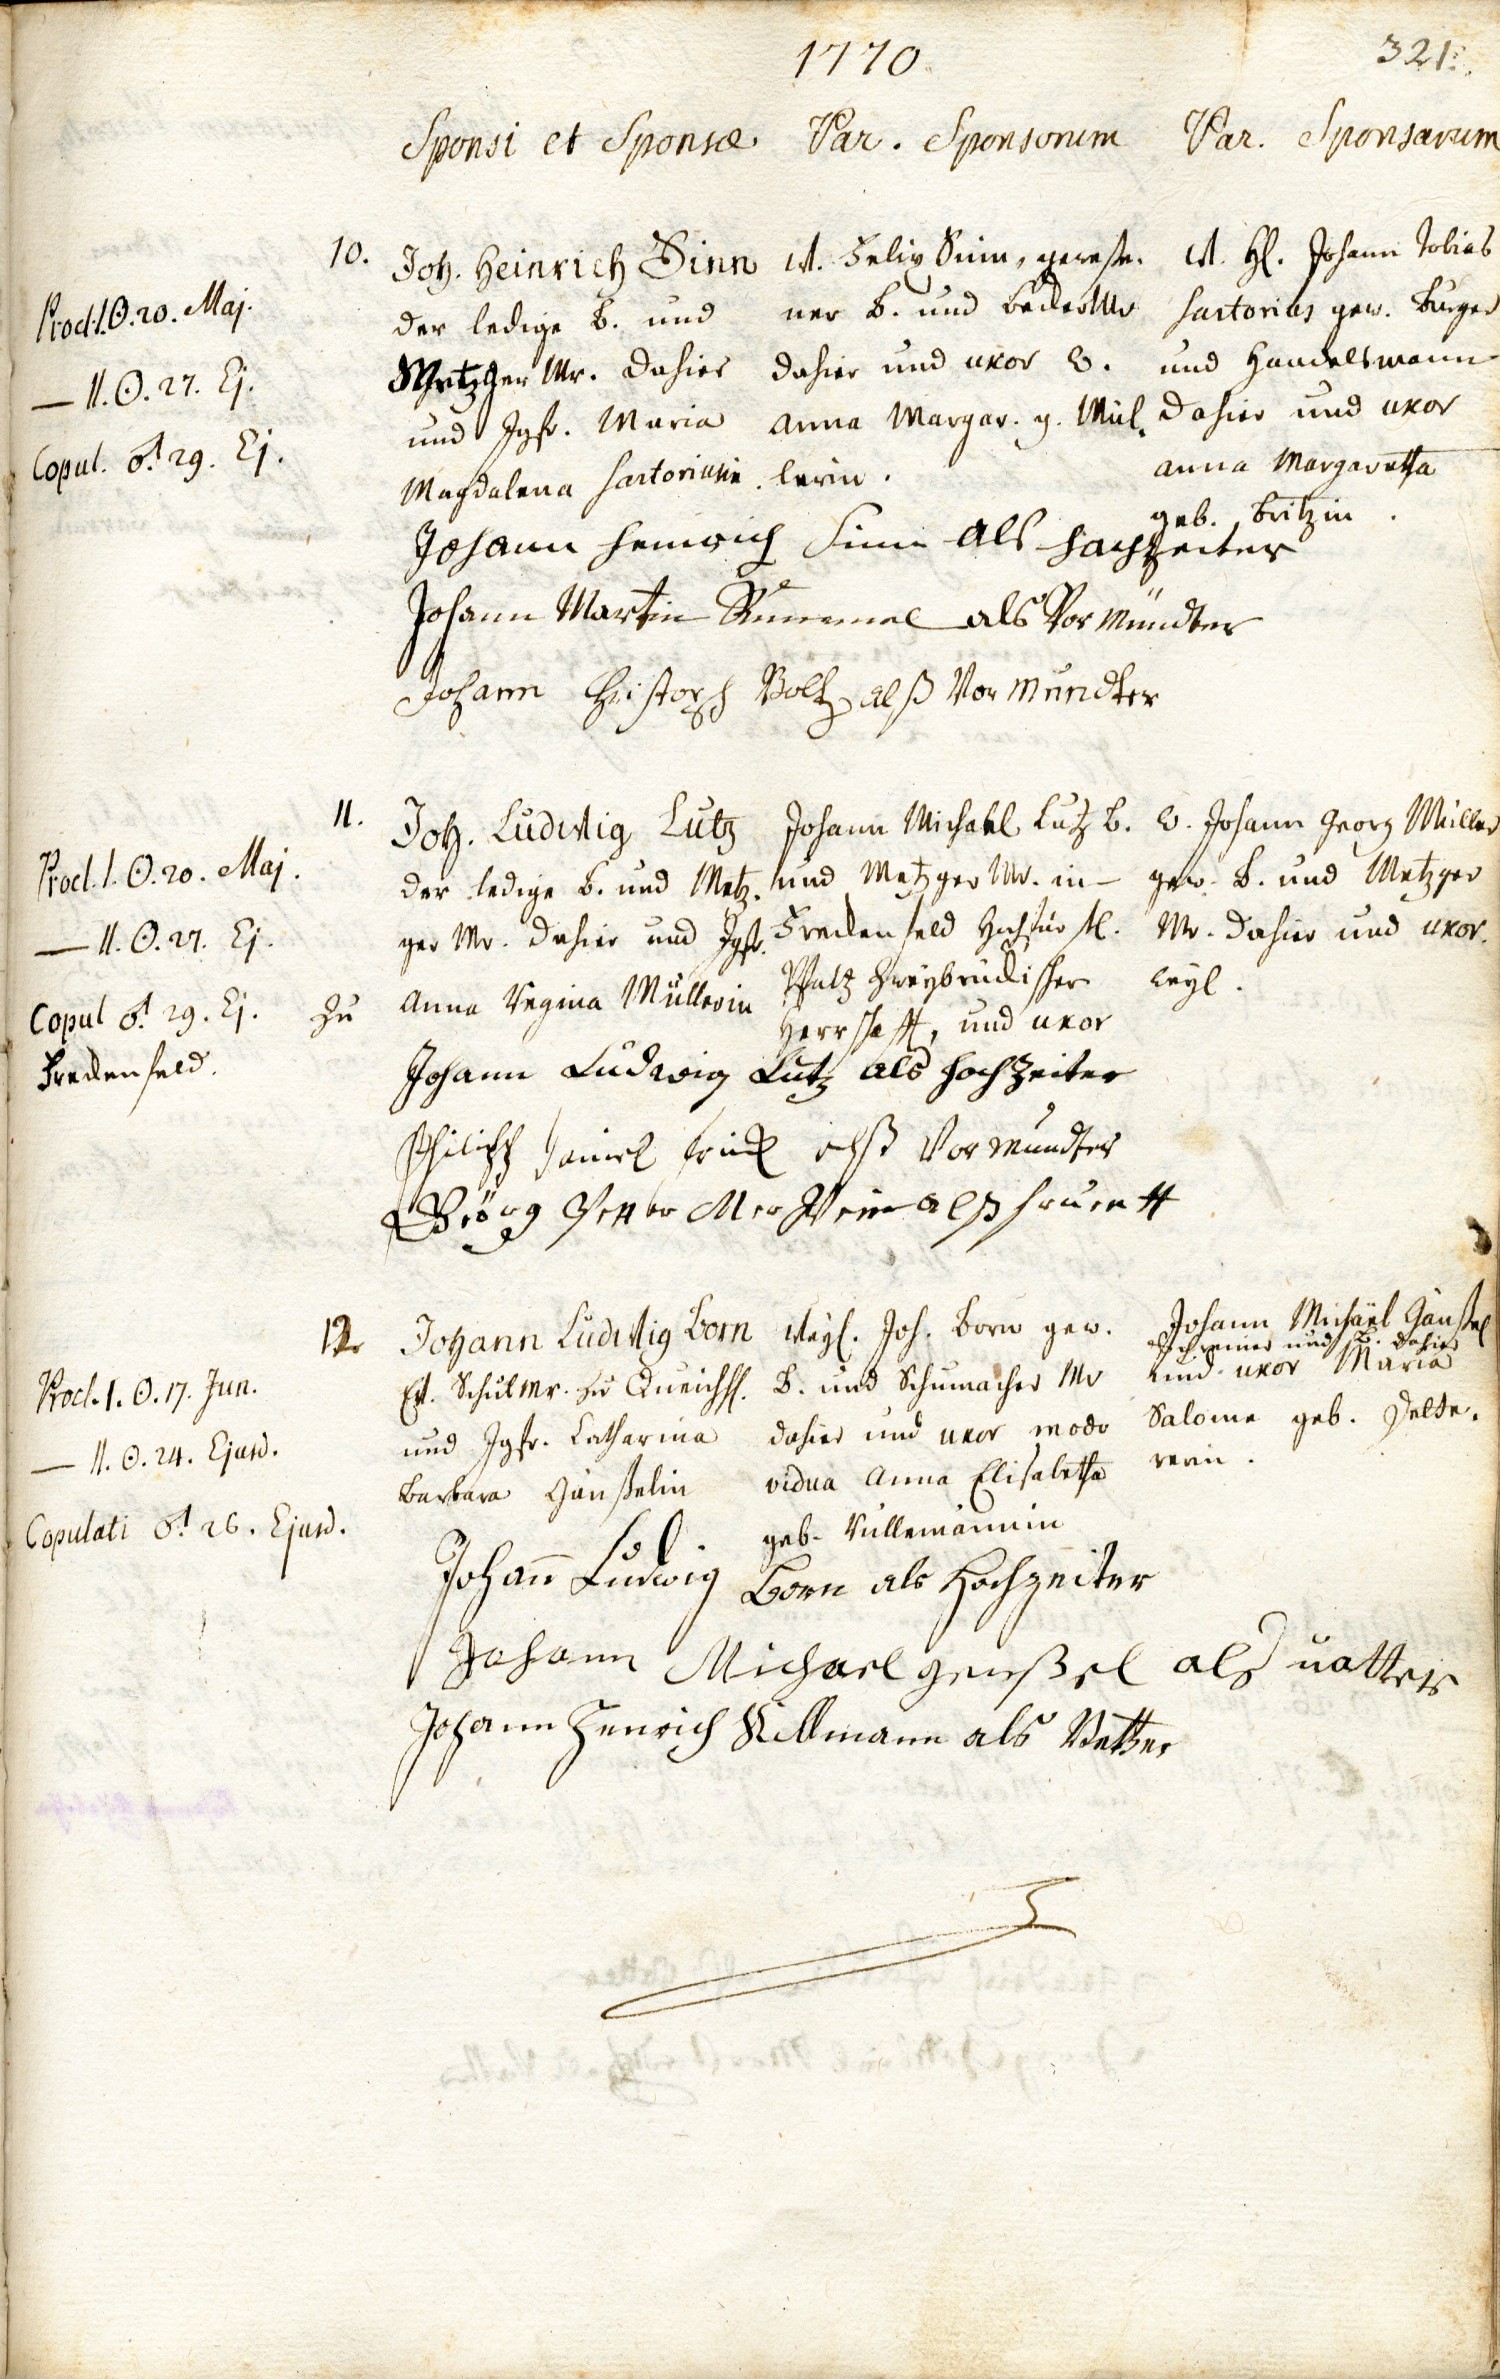 1770.
321.
Sponsi et Sponsæ Par. Sponsorum Par. Sponsarum
10.
Procl. I. ☉. 20. Maj.
— II. ☉. 27. Ej.
Copul. ♂ 29. Ej.
Joh. Heinrich Sinn
der ledige B. und
Metzger Mr. dahier
und Jgfr. Maria
Magdalena Sartoriusin.
W. Felix Sinn, gewese-
ner B. und Becker Mr
dahier und uxor W.
Anna Margar. g. Mül-
lerin.
W. H. Johann Tobias
Sartorius gew. Burger
und Handelsmann
dahier und uxor
Anna Margaretha
geb. Britzin.
Johann Heinrich Sinn als Hochzeiter
Johann Martin Rummel als Vormündter
Johann Christoph Voltz alß Vormundter
11.
Procl. I. ☉. 20. Maj.
— II. ☉. 27. Ej.
Copul ♂ 29. Ej. zu
Freckenfeld.
Joh. Ludwig Lutz
der ledige B. und Metz-
ger Mr. dahier und Jgfr.
Anna Regina Müllerin
Johann Michael Lutz B.
und Metzger Mr. in
Freckenfeld Hochfürstl.
Pfaltz Zweybrückischer
Herrschafft, und uxor
W. Johann Georg Müller
gew. B. und Metzger
Mr. dahier und uxor.
weyl.
Johann Ludwig Lutz als Hochzeiter
Philipp Daniel alß Vormundter
Geörg Petter alß
12.
Procl. I. ☉. 17. Jun.
— II. ☉. 24. Ejusd.
Copulati ♂ 26. Ejusd.
Johann Ludwig Born
Ev. Schulmr. zu Queichh.
und Jgfr. Catharina
Barbara Hänßelin
Weyl. Joh. Born gew.
B. und Schumacher Mr
dahier und uxor modo
vidua Anna Elisabetha
geb. Küllemännin
Johann Michael Hänßel
Schreiner und B. dahier
und uxor Maria
Salome geb. Delte-
rerin.
Johann Ludwig Born als Hochzeiter
Johann Michael genßel als vatter
Johann Henrich Killmann als Vetter